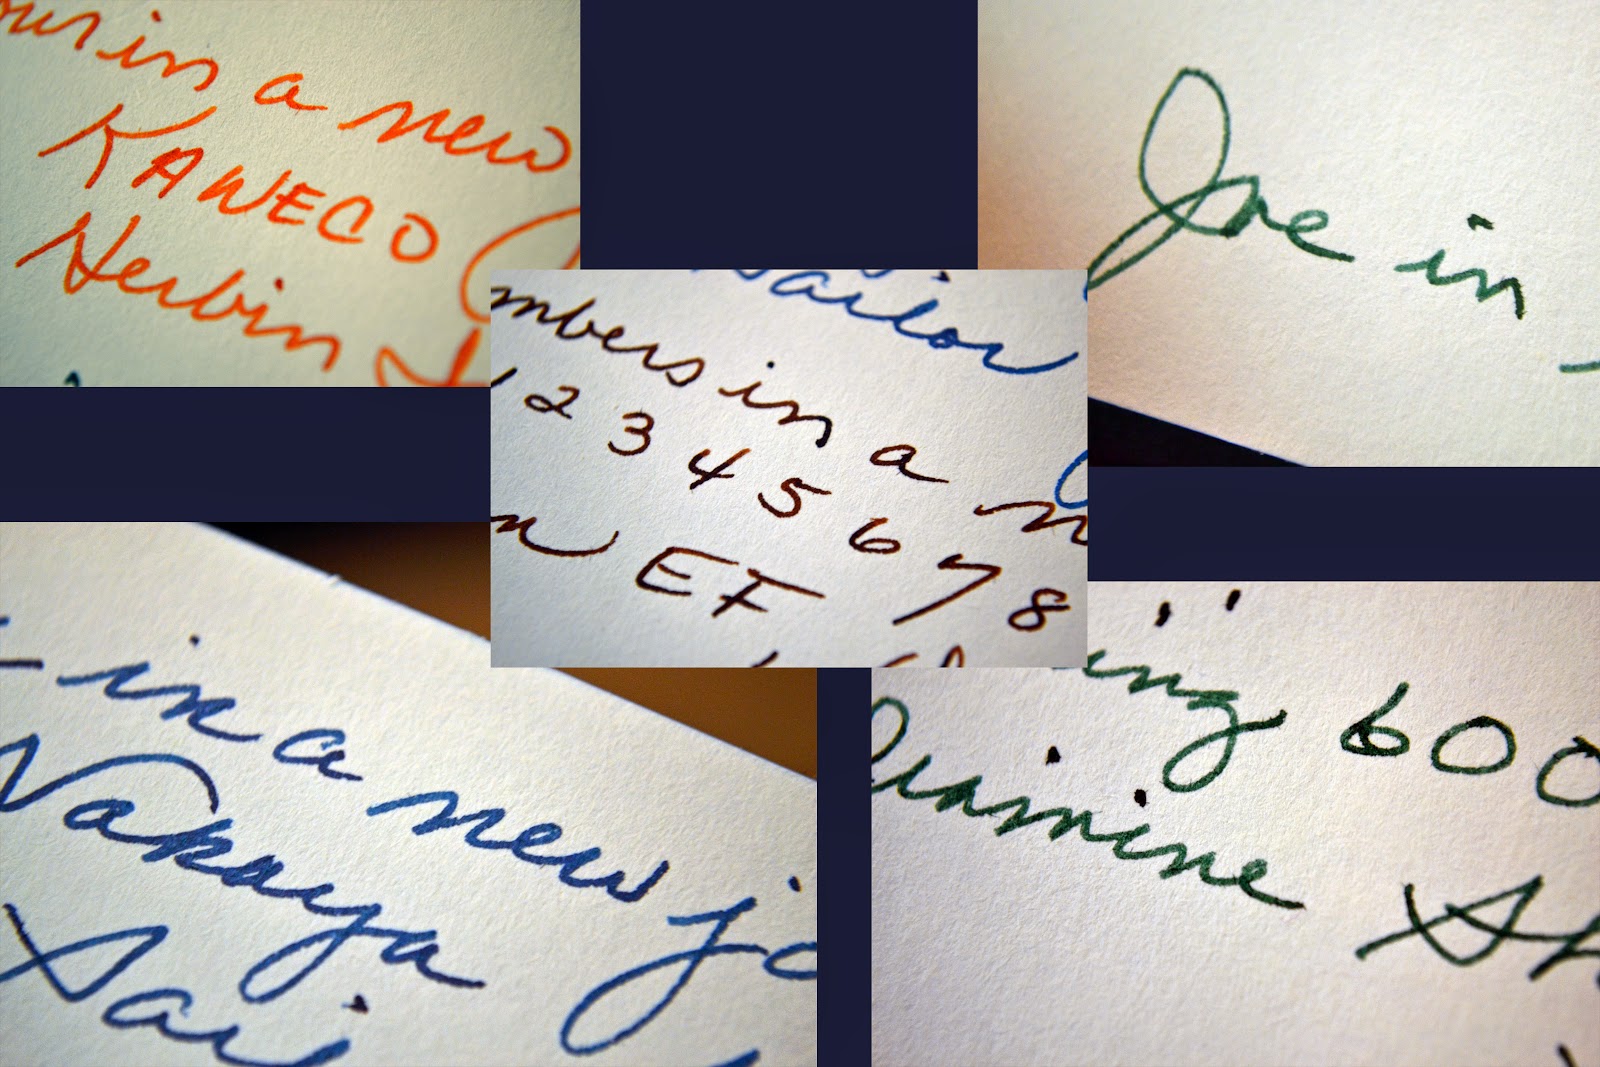 in a new
KAWECO
Herbin
Joe in
Sailor
mbers in a
2 3 4 5 6 7 8
EF
in a new jo
Nakaya
Sai
ing 600
Diamine Sh